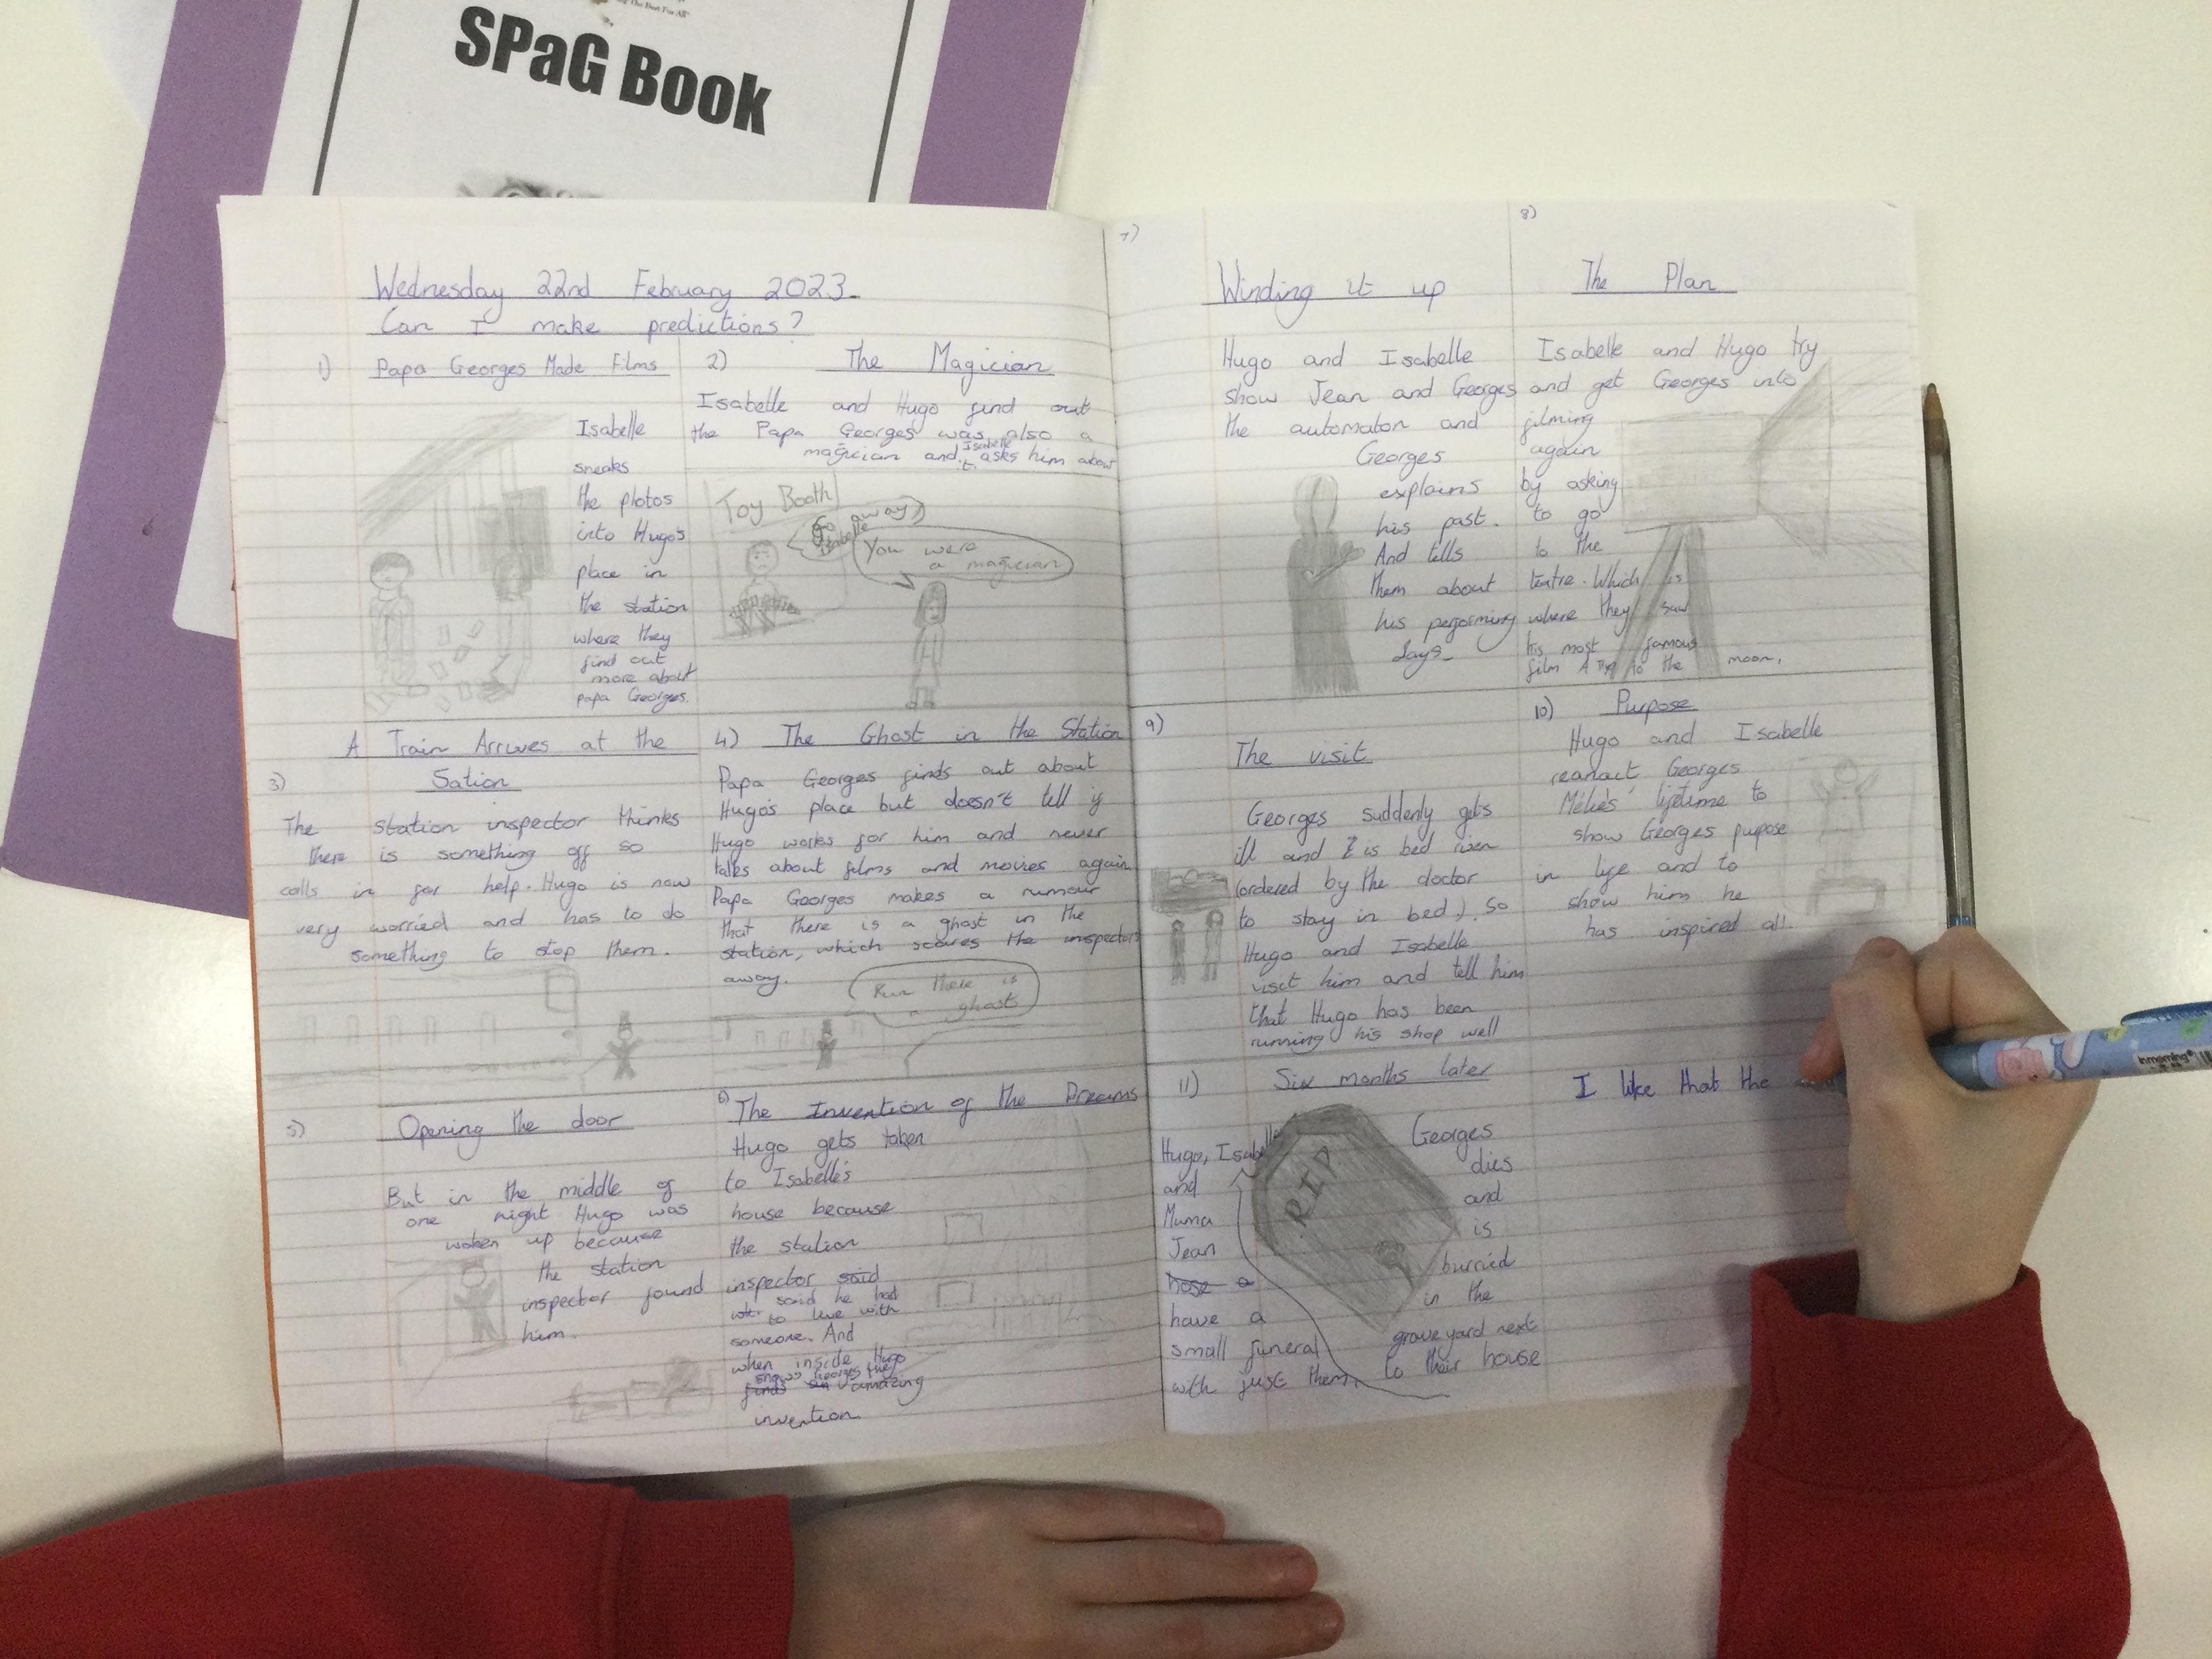 The Best For All"
SPaG Book
Wednesday 22nd February 2023.
Can I make predictions?
1) Papa Georges Made Films
Isabelle
sneaks
the photos
into Hugo's
place in
the station
where they
find out
more about
papa Georges.
2) The Magician
Isabelle and Hugo find out
the Papa Georges was also a
magician and Isabelle asks him about
it.
Toy Booth
Go away
Isabelle
You were
a magician
3) A Train Arrives at the
Sation
The station inspector thinks
there is something off so
calls in for help. Hugo is now
very worried and has to do
something to stop them.
4) The Ghost in the Station
Papa Georges finds out about
Hugo's place but doesn't tell if
Hugo works for him and never
talks about films and movies again
Papa Georges makes a rumour
that there is a ghost in the
station, which scares the inspectors
away.
Run there is
a ghost
5) Opening the door
But in the middle of
one night Hugo was
woken up because
the station
inspector found
him.
6) The Invention of the Dreams
Hugo gets taken
to Isabelle's
house because
the station
inspector said
said he had
to live with
someone. And
when inside Hugo
shows Georges they
finds amazing
invention
7) Winding it up
Hugo and Isabelle
show Jean and Georges
the automaton and
Georges
explains
his past.
And tells
them about
his performing
days.
8) The Plan
Isabelle and Hugo try
and get Georges into
filming
again
by asking
to go
to the
teatre. Which is
where they saw
his most famous
film A Trip to the moon.
9) The visit
Georges suddenly gets
ill and is bed riven
(ordered by the doctor
to stay in bed). So
Hugo and Isabelle
visit him and tell him
that Hugo has been
running his shop well
10) Purpose
Hugo and Isabelle
reanact Georges
Méliès' lifetime to
show Georges pupose
in life and to
show him he
has inspired all.
11) Six months later
Georges
dies
and
is
burried
in the
graveyard next
to their house
RIP
Hugo, Isabelle
and
Mama
Jean
hose a
have a
small funeral
with just them.
I like that the
inmorning